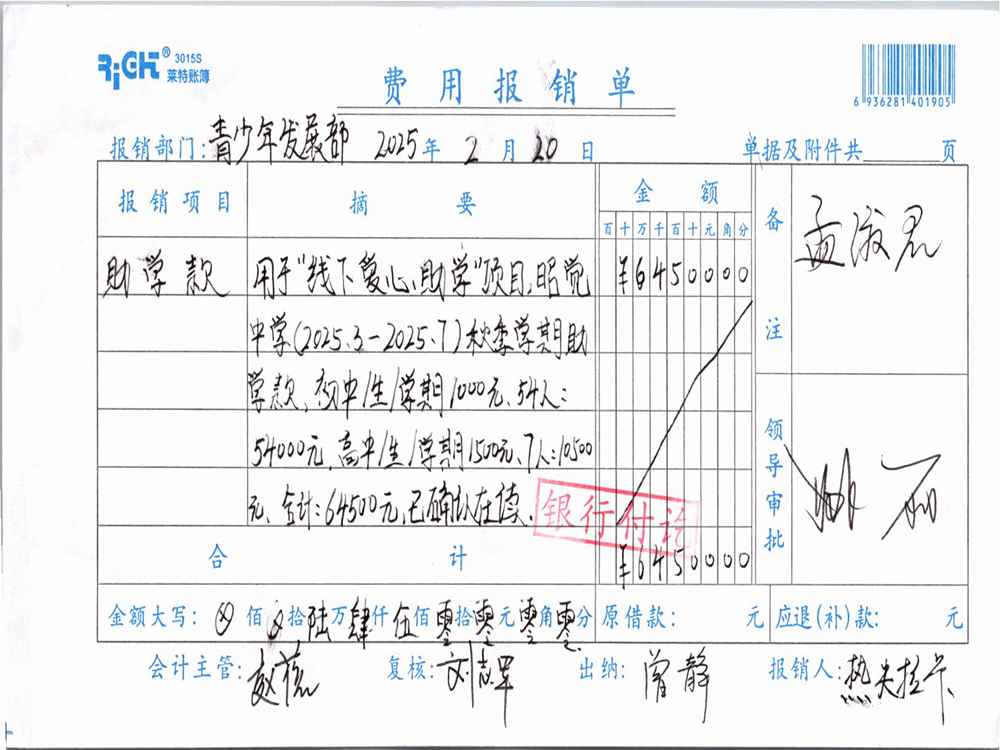 RiGHT® 3015S
莱特账簿
费用报销单
6 936281 401905
报销部门:青少年发展部 2025年2月20日 单据及附件共 页
报销项目 摘要 金额 备注
百十万千百十元角分
孟淑君
助学款 用于"线下爱心助学"项目,昭觉 ¥6450000
中学(2025.3-2025.7)秋季学期助
学款、初中/生/学期1000元、54人:
54000元,高中/生/学期1500元、7人:10500
元、合计:64500元,已确认在读.
银行付讫
领导审批
合计 ¥6450000
金额大写:⊗佰⊗拾陆万肆仟伍佰零拾零元零角零分 原借款: 元 应退(补)款: 元
会计主管: 复核: 出纳:曾静 报销人:热夫拉卡